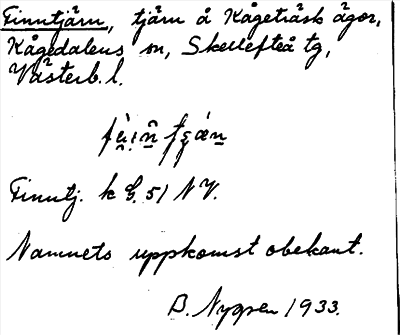 Finntjärn, tjärn å Kågeträsk ägor,
Kågedalens sn, Skellefteå tg,
Västerb. l.
Finntj. k G. 51 NV.
Namnets uppkomst obekant.
B. Nygren 1933.